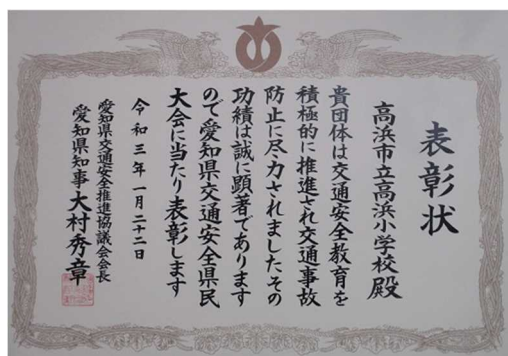 表彰状
高浜市立高浜小学校殿
貴団体は交通安全教育を
積極的に推進され交通事故
防止に尽力されましたその
功績は誠に顕著であります
ので愛知県交通安全県民
大会に当たり表彰します
令和三年一月二十二日
愛知県交通安全推進協議会会長
愛知県知事大村秀章